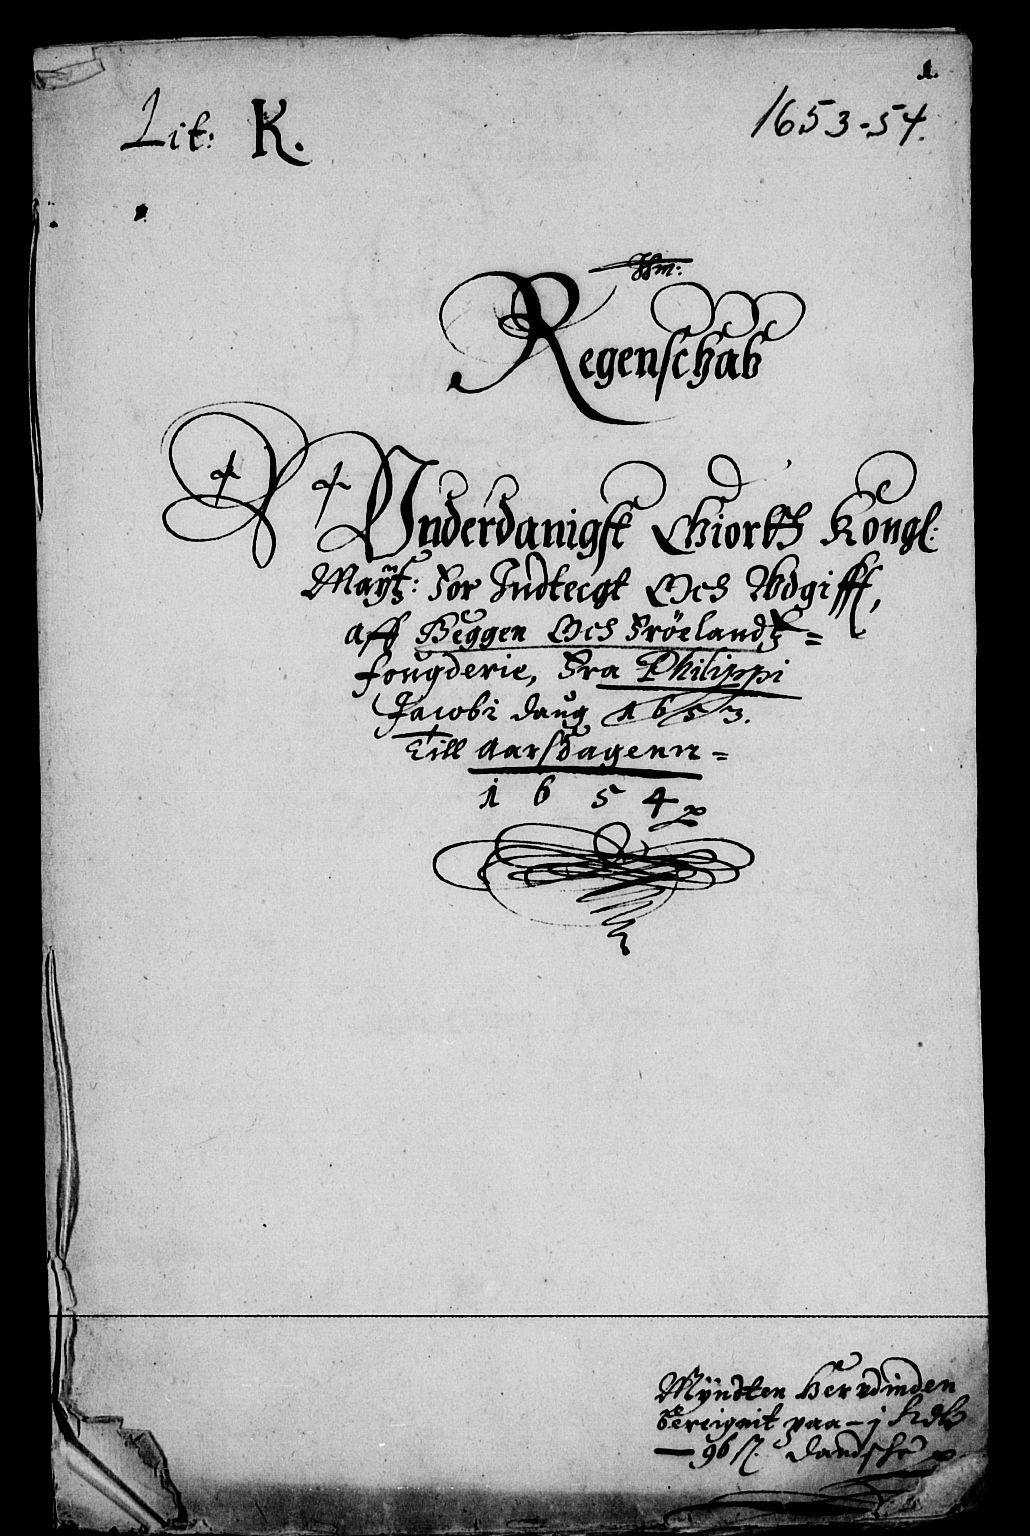 1.
Lit: K.
1653-54.
Regenschab
Underdanigst Giortt Kongl:
Maytz: for Indtecgt Och Udgifft,
aff Heggen Och Fröelandtz
fougderie, Fra Philippi
Jacobi daug 1653.
Till Aarsdagenn
1654
Myndten her udinden
bereignit paa - j Rdlr
96 s. dandsche